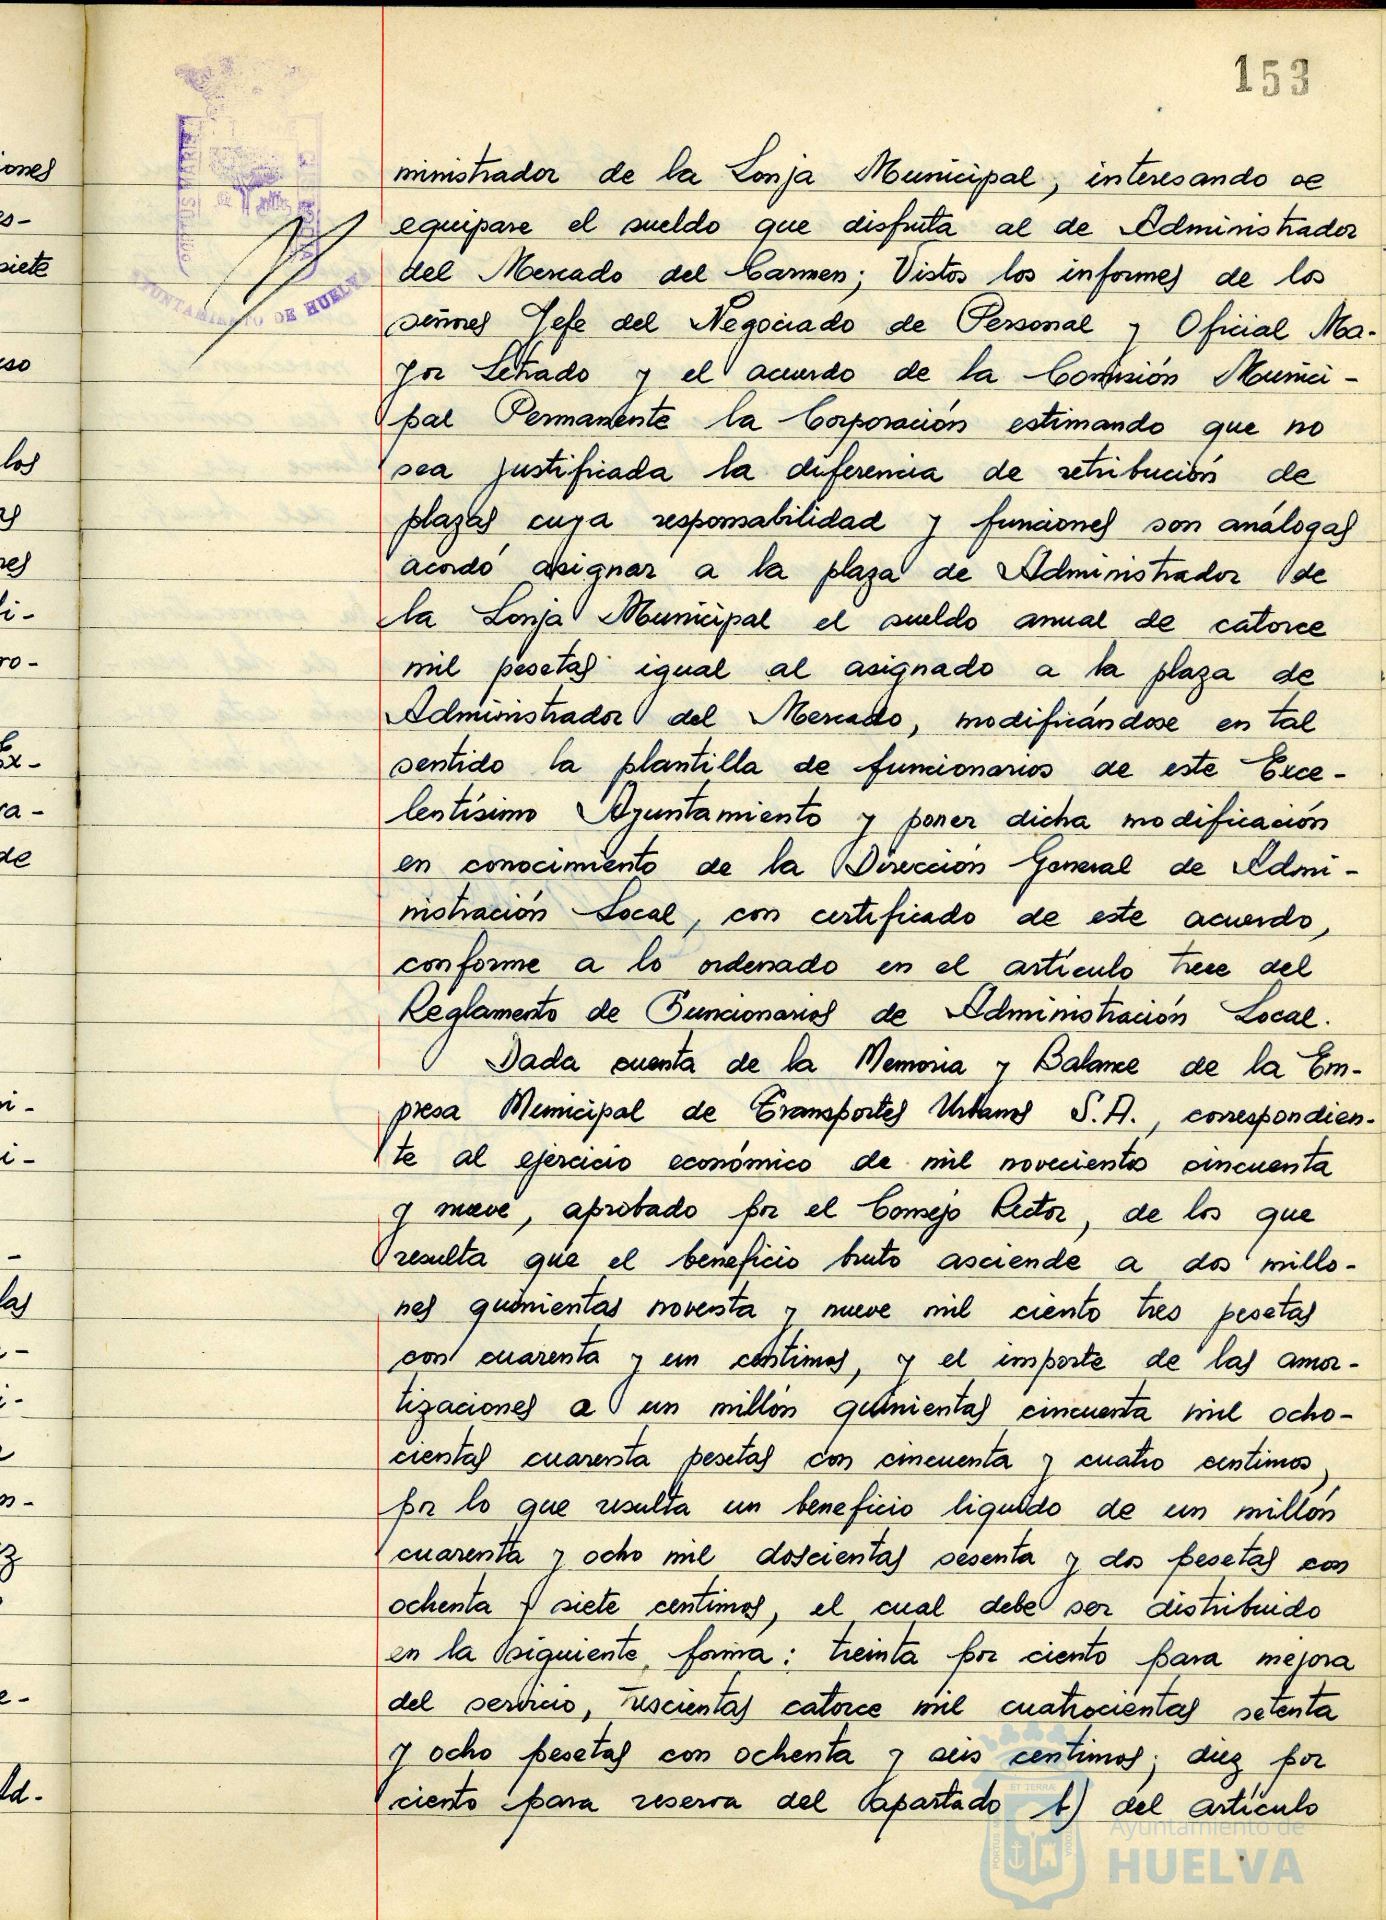 153
ministrador de la Lonja Municipal, interesando se
equipare el sueldo que disfruta al de Administrador
del Mercado del Carmen; Vistos los informes de los
señores Jefe del Negociado de Personal y Oficial Ma-
yor Letrado y el acuerdo de la Comisión Munici-
pal Permanente la Corporación estimando que no
sea justificada la diferencia de retribución de
plazas cuya responsabilidad y funciones son análogas
acordó asignar a la plaza de Administrador de
la Lonja Municipal el sueldo anual de catorce
mil pesetas igual al asignado a la plaza de
Administrador del Mercado, modificándose en tal
sentido la plantilla de funcionarios de este Exce-
lentísimo Ayuntamiento y poner dicha modificación
en conocimiento de la Dirección General de Admi-
nistración Local, con certificado de este acuerdo,
conforme a lo ordenado en el artículo trece del
Reglamento de Funcionarios de Administración Local.
Dada cuenta de la Memoria y Balance de la Em-
presa Municipal de Transportes Urbanos S.A., correspondien-
te al ejercicio económico de mil novecientos cincuenta
y nueve, aprobado por el Consejo Rector, de los que
resulta que el beneficio bruto asciende a dos millo-
nes quinientas noventa y nueve mil ciento tres pesetas
con cuarenta y un centimos, y el importe de las amor-
tizaciones a un millón quinientas cincuenta mil ocho-
cientas cuarenta pesetas con cincuenta y cuatro centimos,
por lo que resulta un beneficio liquido de un millón
cuarenta y ocho mil doscientas sesenta y dos pesetas con
ochenta y siete centimos, el cual debe ser distribuido
en la siguiente forma: treinta por ciento para mejora
del servicio, trescientas catorce mil cuatrocientas setenta
y ocho pesetas con ochenta y seis centimos; diez por
ciento para reserva del apartado b) del artículo
AYUNTAMIENTO DE HUELVA
Ayuntamiento de
HUELVA